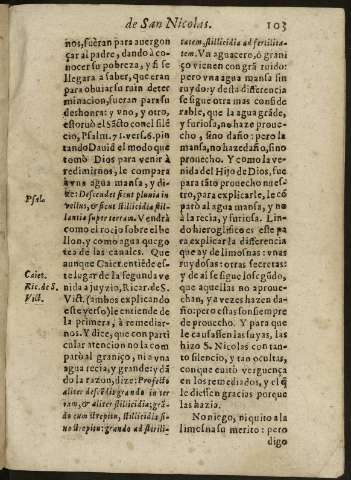 de San Nicolas.
103
nos, fueran para auergon
çar al padre, dando à co-
nocer su pobreza, y si se
llegara a saber, que eran
para obuiar su ruin deter
minacion, fueran para su
deshonra: y vno, y otro,
estoruò el Sãcto con el silẽ
cio, Psalm. 71. vers. 6. pin
tando Dauid el modo que
tomò Dios para venir à
redimirnos, le compara
à vna agua mansa, y di-
ze: Descendet sicut pluuia in
vellus, & sicut stillicidia still-
lantia super terram. Vendrà
como el rocio sobre el be
llon, y como agua que go
tea de las canales. Que
aunque Caiet. entiẽde es-
te lugar de la segunda ve
nida a juyzio, Ricar. de S.
Vict. (ambos explicando
este verso) le entiende de
la primera, à remediar-
nos. Y dize, que con parti
cular atencion no la com
parò al graniço, ni a vna
agua recia, y grande: y dã
do la razon, dize: Profectò
aliter descẽdit grando in ter
ram, & aliter stillicidia; grã-
do cum strepitu, stillicidia si-
ne strepitu: grando ad sterili-
Psalm.
Caiet.
Ric. de S.
Vict.
tatem, stillicidia ad fertilita-
tem. Vn aguacero, ó grani
ço vienen con grã roido:
pero vna agua mansa sin
ruydo: y desta diferencia
se sigue otra mas conside
rable, que la agua grãde,
y furiosa, no haze proue-
cho, sino daño: pero la
mansa, no haze daño, sino
prouecho. Y como la ve-
nida del Hijo de Dios, fue
para tãto prouecho nues-
tro, para explicarle, le cõ
parò al agua mansa, y no
à la recia, y furiosa. Lin-
do hieroglifico es este pa
ra explicar la diferencia
que ay de limosnas: vnas
ruydosas: otras secretas:
y de aì se sigue los egũdo,
que aquellas no aproue-
chan, y a vezes hazen da-
ño: pero estas son siempre
de prouecho. Y para que
le causassen las suyas, las
hizo S. Nicolas con tan-
to silencio, y tan ocultas,
con que euitò verguença
en los remediados, y el q̃
le diessen gracias porque
las hazia.
No niego, ni quito a la
limosna su merito: pero
digo